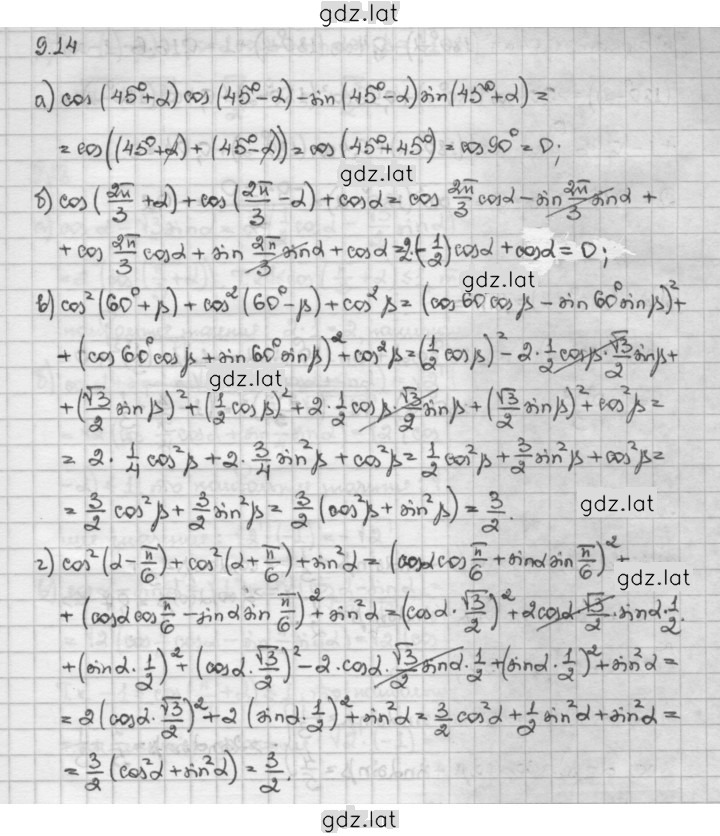 gdz.lat
9.14
а) cos(45°+α)cos(45°-α)-sin(45°-α)sin(45°+α)=
=cos((45°+α)+(45°-α))=cos(45°+45°)=cos90°=0;
gdz.lat
б) cos(2π/3+α)+cos(2π/3-α)+cosα=cos 2π/3 cosα-sin 2π/3 sinα+
+cos 2π/3 cosα+sin 2π/3 sinα+cosα=2·(-1/2)cosα+cosα=0;
gdz.lat
в) cos²(60°+β)+cos²(60°-β)+cos²β=(cos60°cosβ-sin60°sinβ)²+
+(cos60°cosβ+sin60°sinβ)²+cos²β=(1/2 cosβ)²-2·1/2 cosβ·√3/2 sinβ+
gdz.lat
+(√3/2 sinβ)²+(1/2 cosβ)²+2·1/2 cosβ √3/2 sinβ+(√3/2 sinβ)²+cos²β=
=2·1/4 cos²β+2·3/4 sin²β+cos²β=1/2 cos²β+3/2 sin²β+cos²β=
=3/2 cos²β+3/2 sin²β=3/2(cos²β+sin²β)=3/2.
gdz.lat
г) cos²(α-π/6)+cos²(α+π/6)+sin²α=(cosαcos π/6+sinαsin π/6)²+
gdz.lat
+(cosαcos π/6-sinαsin π/6)²+sin²α=(cosα·√3/2)²+2cosα·√3/2·sinα·1/2.
+(sinα·1/2)²+(cosα·√3/2)²-2·cosα·√3/2 sinα·1/2+(sinα·1/2)²+sin²α=
=2(cosα·√3/2)²+2(sinα·1/2)²+sin²α=3/2 cos²α+1/2 sin²α+sin²α=
=3/2(cos²α+sin²α)=3/2.
gdz.lat